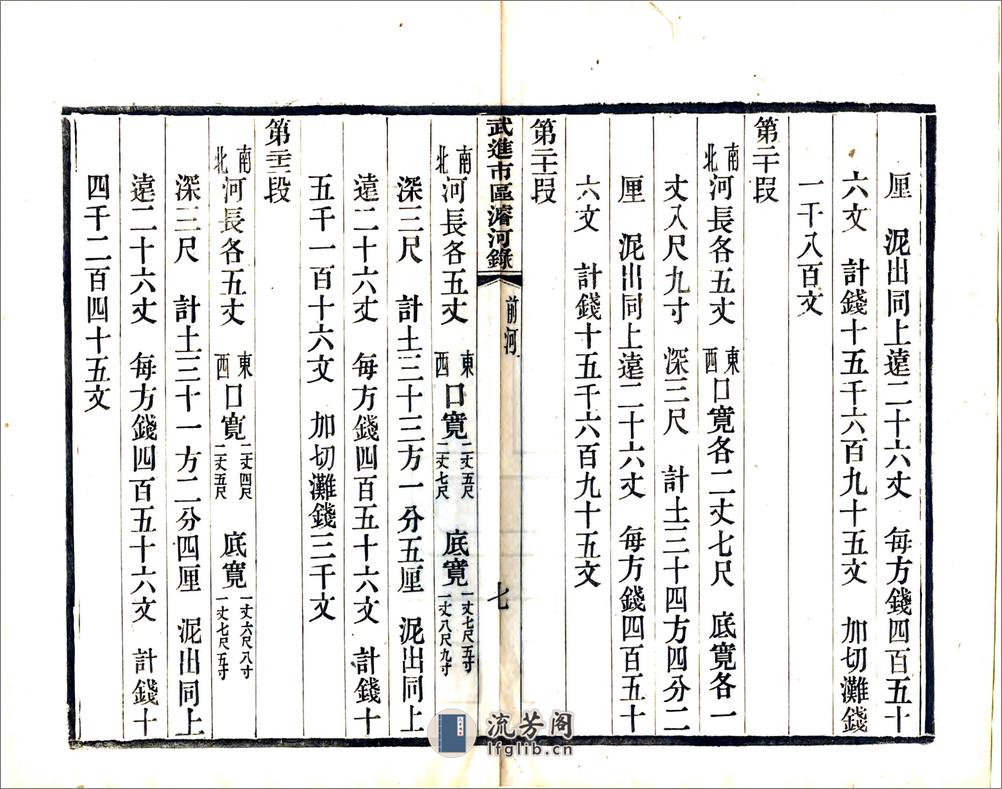 厘　泥出同上遠二十六丈　每方錢四百五十
六文　計錢十五千六百九十五文　加切灘錢
一千八百文
第二十段
南北河長各五丈　東西口寬各二丈七尺　底寬各一
丈八尺九寸　深三尺　計土三十四方四分二
厘　泥出同上遠二十六丈　每方錢四百五十
六文　計錢十五千六百九十五文
第二十一段
武進市區濬河錄　前河　七
南北河長各五丈　東西口寬二丈五尺二丈七尺　底寬一丈七尺五寸一丈八尺九寸
深三尺　計土三十三方一分五厘　泥出同上
遠二十六丈　每方錢四百五十六文　計錢十
五千一百十六文　加切灘錢三千文
第二十二段
南北河長各五丈　東西口寬二丈四尺二丈五尺　底寬一丈六尺八寸一丈七尺五寸
深三尺　計土三十一方二分四厘　泥出同上
遠二十六丈　每方錢四百五十六文　計錢十
四千二百四十五文
流芳阁
lfglib.cn